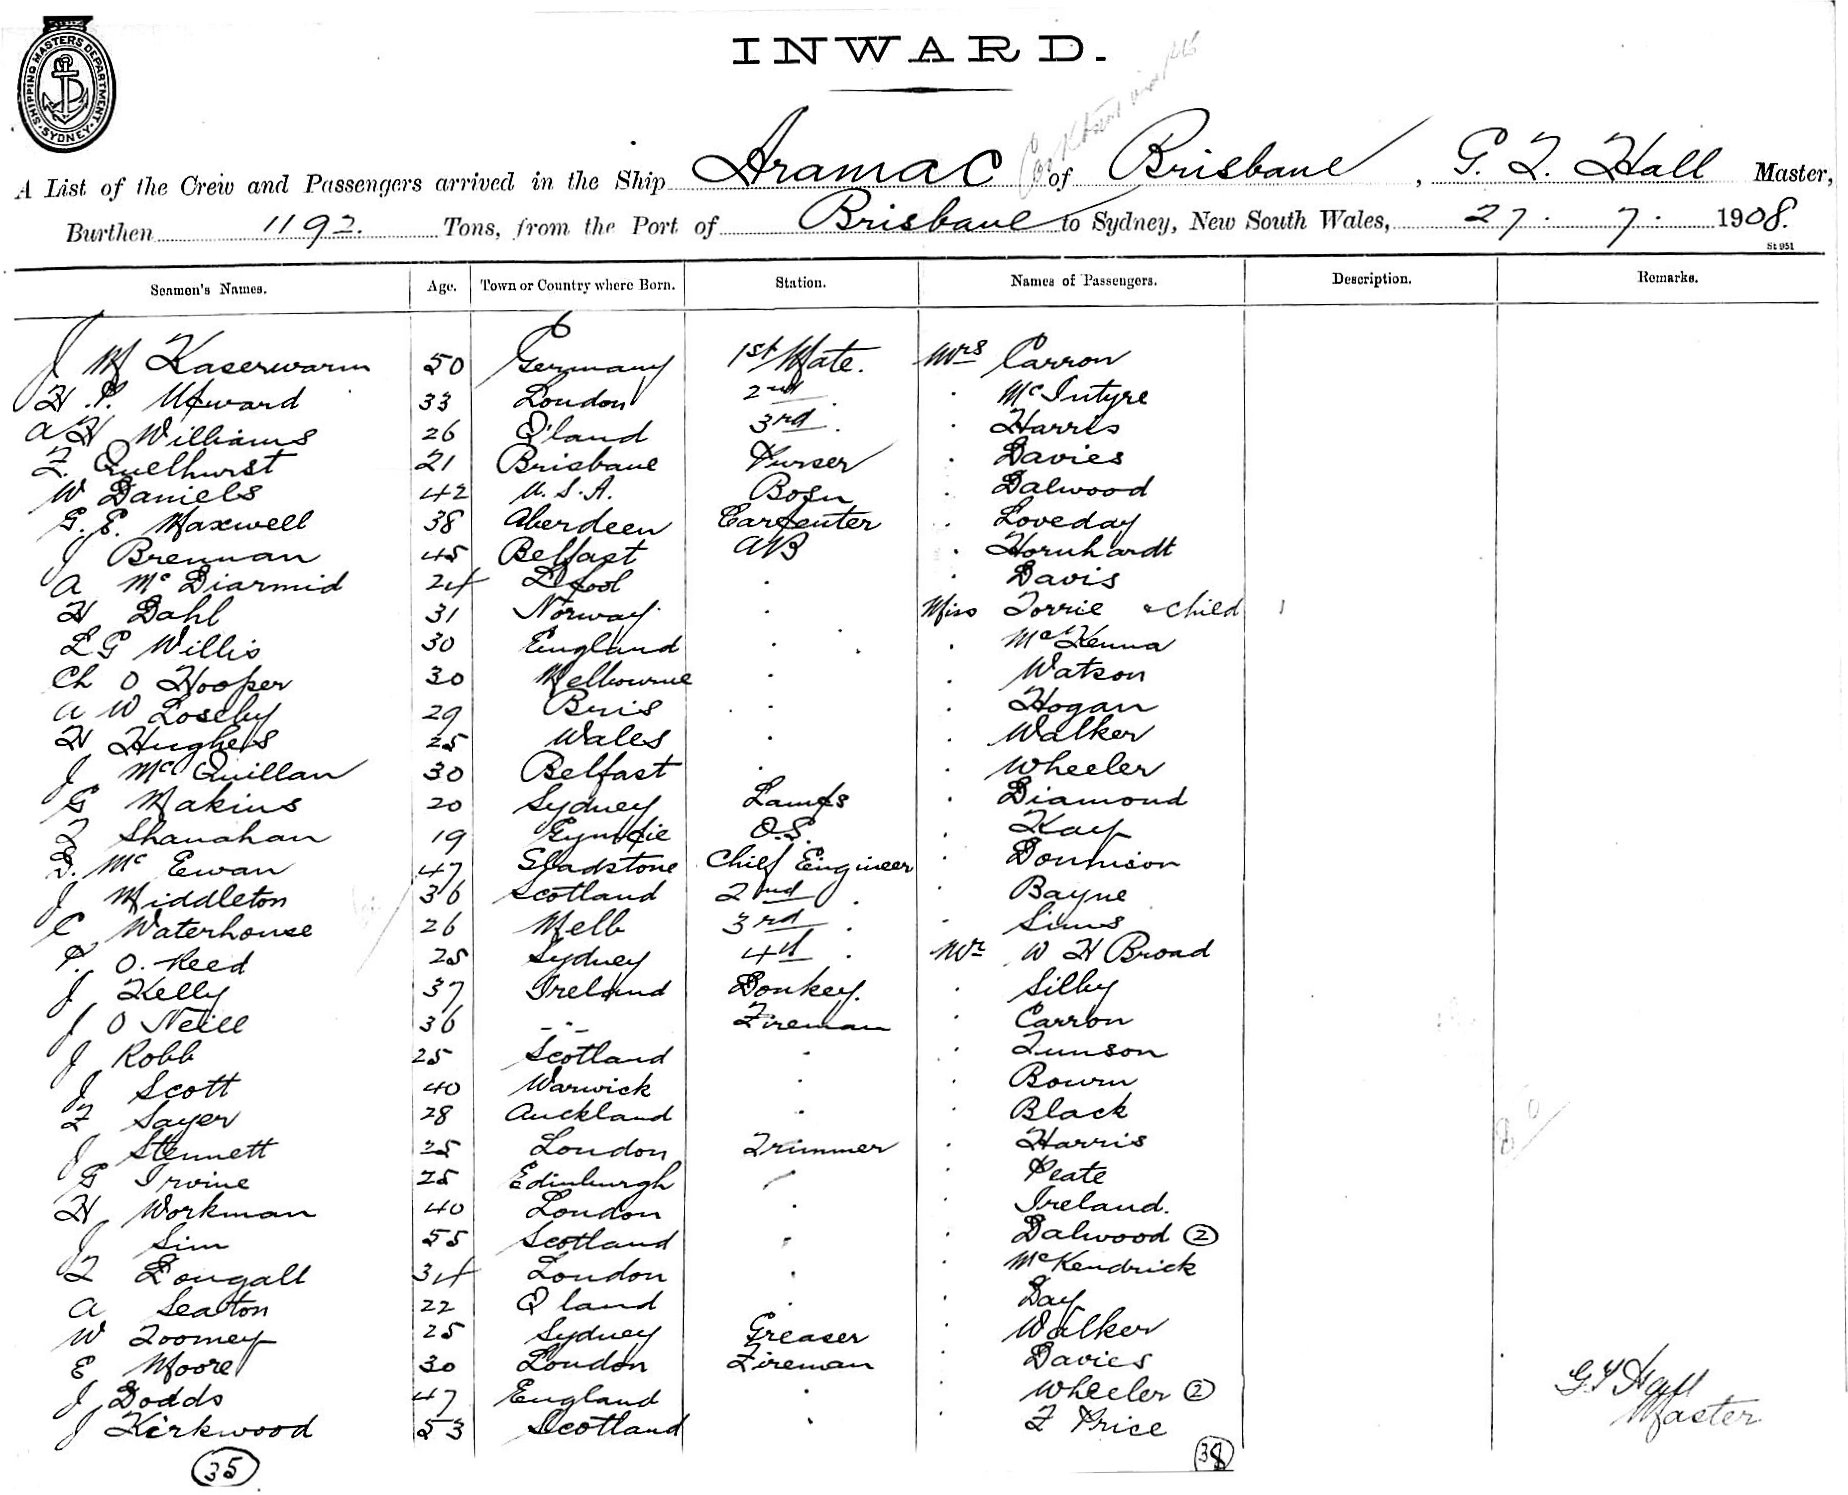 INWARD.
SHIPPING MASTERS DEPARTMENT
SYDNEY
A List of the Crew and Passengers arrived in the Ship Aramac of Brisbane, G. T. Hall Master,
Burthen 1192. Tons, from the Port of Brisbane to Sydney, New South Wales, 27. 7. 1908.
St 951
Seamen's Names. Age. Town or Country where Born. Station. Names of Passengers. Description. Remarks.
J M Kaserwarm 50 Germany 1st Mate. Mrs Carron
H. P. Upward 33 London 2nd . McIntyre
A H Williams 26 Q'land 3rd . . Harris
F. Quelhurst 21 Brisbane Purser . Davies
W Daniels 42 U.S.A. Bosn . Dalwood
G. E. Maxwell 38 Aberdeen Carpenter . Loveday
J Brennan 45 Belfast AB . Hornhardt
A McDiarmid 24 L'pool . . Davis
H Dahl 31 Norway . Miss Torrie & child 1
L G Willis 30 England . . McKenna
Ch O Hooper 30 Melbourne . . Watson
A W Loseby 29 Bris . . Hogan
H Hughes 25 Wales . . Walker
J McQuillan 30 Belfast . . Wheeler
G Makins 20 Sydney Lamps . Diamond
T Shanahan 19 Gympie O.S. . Kay
D. McEwan 47 Gladstone Chief Engineer . Donnison
J Middleton 36 Scotland 2nd . . Bayne
C Waterhouse 26 Melb 3rd . . Sims
P. O. Reed 25 Sydney 4th . Mr W H Broad
J Kelly 37 Ireland Donkey. . Silby
J O'Neill 36 -"- Fireman . Carron
J Robb 25 Scotland . . Tunson
J Scott 40 Warwick . . Bourn
F Sayer 28 Auckland . . Black
J Stennett 25 London Trimmer . Harris
G Irvine 25 Edinburgh . Peate
H Workman 40 London . . Ireland.
J Sim 55 Scotland . . Dalwood 2
T Dougall 34 London . . McKendrick
A Seaton 22 Q land . . Day
W Toomey 25 Sydney Greaser . Walker
E Moore 30 London Fireman . Davies
J Dodds 47 England . . Wheeler 2
J Kirkwood 53 Scotland . . F Price
35 38
G T Hall
Master